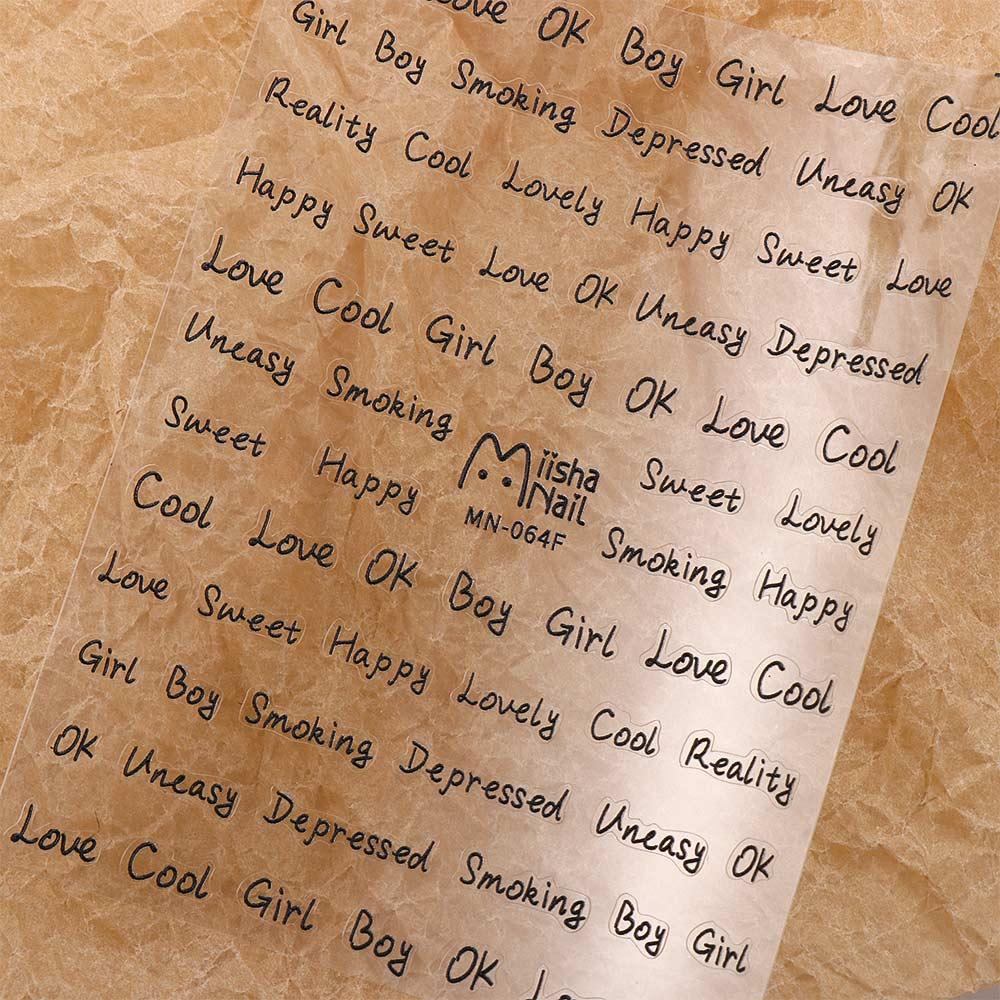 Love OK Boy Girl Love Cool
Girl Boy Smoking Depressed Uneasy OK
Reality Cool Lovely Happy Sweet Love
Happy Sweet Love OK Uneasy Depressed
Love Cool Girl Boy OK Love Cool
Uneasy Smoking Sweet Lovely
Miisha
Nail
MN-064F
Sweet Happy Smoking Happy
Cool Love OK Boy Girl Love Cool
Love Sweet Happy Lovely Cool Reality
Girl Boy Smoking Depressed Uneasy OK
OK Uneasy Depressed Smoking Boy Girl
Love Cool Girl Boy OK